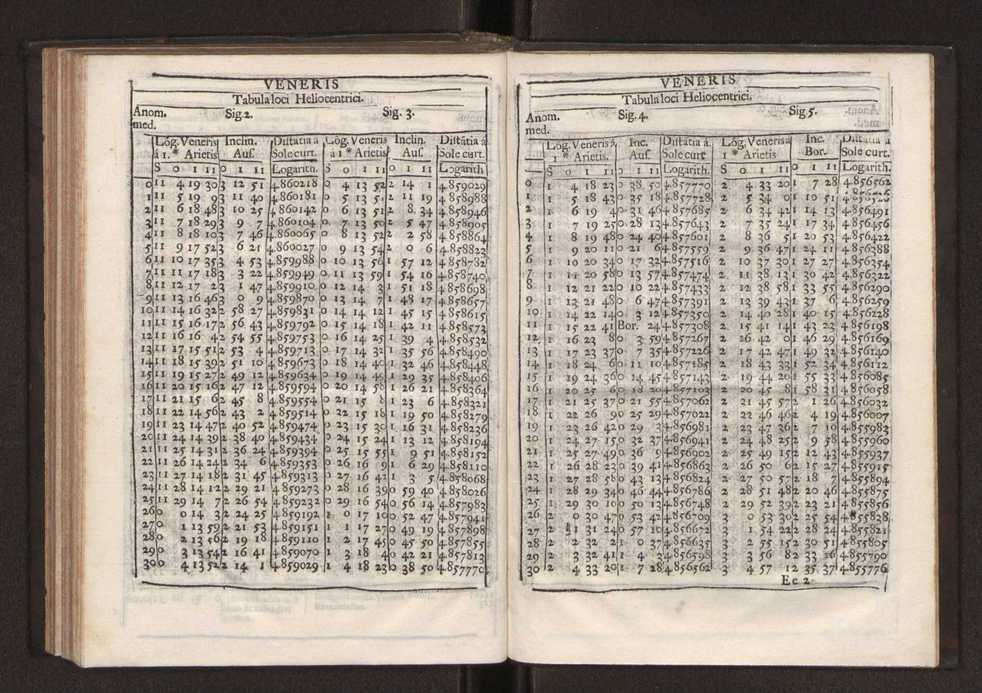 VENERIS
Tabula loci Heliocentrici.
Anom. med. Sig 2. Sig. 3.
Lōg. Veneris á 1. * Arietis Inclin. Auſ. Diſtātia á Sole curt. Lōg. Veneris á 1 * Arietis Inclin. Auſ. Diſtātia á Sole curt.
S 0 1 11 0 1 11 Logarith. S 0 1 11 0 1 11 Logarith
0 11 4 19 30 3 12 51 4860218 0 4 13 52 2 14 1 4859029
1 11 5 19 9 3 11 40 4860181 0 5 13 51 2 11 19 4858988
2 11 6 18 48 3 10 25 4860142 0 6 13 51 2 8 34 4858946
3 11 7 18 29 3 9 7 4860104 0 7 13 50 2 5 47 4858905
4 11 8 18 10 3 7 46 4860065 0 8 13 52 2 2 58 4858864
5 11 9 17 52 3 6 21 4860027 0 9 13 54 2 0 6 4858823
6 11 10 17 35 3 4 53 4859988 0 10 13 56 1 57 12 4858782
7 11 11 17 18 3 3 22 4859949 0 11 13 59 1 54 16 4858740
8 11 12 17 2 3 1 47 4859910 0 12 14 3 1 51 18 4858698
9 11 13 16 46 3 0 9 4859870 0 13 14 7 1 48 17 4858657
10 11 14 16 32 2 58 27 4859831 0 14 14 12 1 45 15 4858615
11 11 15 16 17 2 56 43 4859792 0 15 14 18 1 42 11 4858573
12 11 16 16 4 2 54 55 4859753 0 16 14 25 1 39 4 4858532
13 11 17 15 51 2 53 4 4859713 0 17 14 32 1 35 56 4858490
14 11 18 15 39 2 51 10 4859673 0 18 14 40 1 32 46 4858448
15 11 19 15 27 2 49 12 4859634 0 19 14 49 1 29 35 4858406
16 11 20 15 16 2 47 12 4859594 0 20 14 58 1 26 21 4858364
17 11 21 15 6 2 45 8 4859554 0 21 15 8 1 23 6 4858321
18 11 22 14 56 2 43 2 4859514 0 22 15 18 1 19 50 4858279
19 11 23 14 47 2 40 52 4859474 0 23 15 30 1 16 31 4858236
20 11 24 14 39 2 38 40 4859434 0 24 15 24 1 13 12 4858194
21 11 25 14 31 2 36 24 4859394 0 25 15 55 1 9 51 4858152
22 11 26 14 24 2 34 6 4859353 0 26 16 9 1 6 29 4858110
23 11 27 14 18 2 31 45 4859313 0 27 16 42 1 3 5 4858068
24 11 28 14 12 2 29 21 4859273 0 28 16 39 0 59 40 4858026
25 11 29 14 7 2 26 54 4859232 0 29 16 54 0 56 14 4857983
26 0 0 14 3 2 24 25 4859192 1 0 17 10 0 52 47 4857941
27 0 1 13 59 2 21 53 4859151 1 1 17 27 0 49 19 4857898
28 0 2 13 56 2 19 18 4859110 1 2 17 45 0 45 50 4857855
29 0 3 13 54 2 16 41 4859070 1 3 18 4 0 42 21 4857812
30 0 4 13 52 2 14 1 4859029 1 4 18 23 0 38 50 4857770
VENERIS
Tabula loci Heliocentrici.
Anom. med. Sig. 4. Sig 5.
Lōg. Veneris á 1 * Arietis. Inc. Auſ. Diſtātia á Sole curt Lōg. Veneris á 1 * Arietis Inc. Bor. Diſtātia á Sole curt.
S 0 1 11 0 1 11 Logarith. S 0 1 11 0 1 11 Logarith.
0 1 4 18 23 0 38 50 4857770 2 4 33 20 1 7 28 4856562
1 1 5 18 43 0 35 18 4857728 2 5 34 0 1 10 51 4856526
2 1 6 19 4 0 31 46 4857685 2 6 34 42 1 14 13 4856491
3 1 7 19 25 0 28 13 4857643 2 7 35 24 1 17 34 4856456
4 1 8 19 48 0 24 40 4857601 2 8 36 5 1 20 53 4856422
5 1 9 20 11 0 21 7 4857559 2 9 36 47 1 24 11 4856388
6 1 10 20 34 0 17 32 4857516 2 10 37 30 1 27 27 4856354
7 1 11 20 58 0 13 57 4857474 2 11 38 13 1 30 42 4856322
8 1 12 21 22 0 10 22 4857433 2 12 38 58 1 33 55 4856290
9 1 13 21 48 0 6 47 4857391 2 13 39 43 1 37 6 4856259
10 1 14 22 14 0 3 12 4857350 2 14 40 28 1 40 15 4856228
11 1 15 22 41 Bor. 24 4857308 2 15 41 14 1 43 23 4856198
12 1 16 23 8 0 3 59 4857267 2 16 42 0 1 46 29 4856169
13 1 17 23 37 0 7 35 4857226 2 17 42 47 1 49 32 4856140
14 1 18 24 6 0 11 10 4857185 2 18 43 33 1 52 34 4856112
15 1 19 24 36 0 14 45 4857143 2 19 44 20 1 55 33 4856085
16 1 20 25 6 0 18 20 4857103 2 20 45 8 1 58 31 4856058
17 1 21 25 37 0 21 55 4857062 2 21 45 57 2 1 26 4856032
18 1 22 26 9 0 25 29 4857022 2 22 46 46 2 4 19 4856007
19 1 23 26 42 0 29 3 4856981 2 23 47 36 2 7 10 4855983
20 1 24 27 15 0 32 37 4856941 2 24 48 25 2 9 58 4855960
21 1 25 27 49 0 36 9 4856902 2 25 49 15 2 12 43 4855937
22 1 26 28 23 0 39 41 4856863 2 26 50 6 2 15 27 4855915
23 1 27 28 58 0 43 13 4856824 2 27 50 57 2 18 7 4855894
24 1 28 29 34 0 46 44 4856786 2 28 51 48 2 20 46 4855875
25 1 29 30 10 0 50 13 4856748 2 29 52 39 2 23 21 4855856
26 2 0 30 47 0 53 42 4856709 3 0 53 30 2 25 54 4855838
27 2 1 31 24 0 57 10 4856672 3 1 54 22 2 28 24 4855821
28 2 2 32 2 1 0 37 4856635 3 2 55 15 2 30 51 4855805
29 2 3 32 41 1 4 3 4856598 3 3 56 8 2 33 16 4855790
30 2 4 33 20 1 7 28 4856562 3 4 57 1 2 35 37 4855776
Ee 2